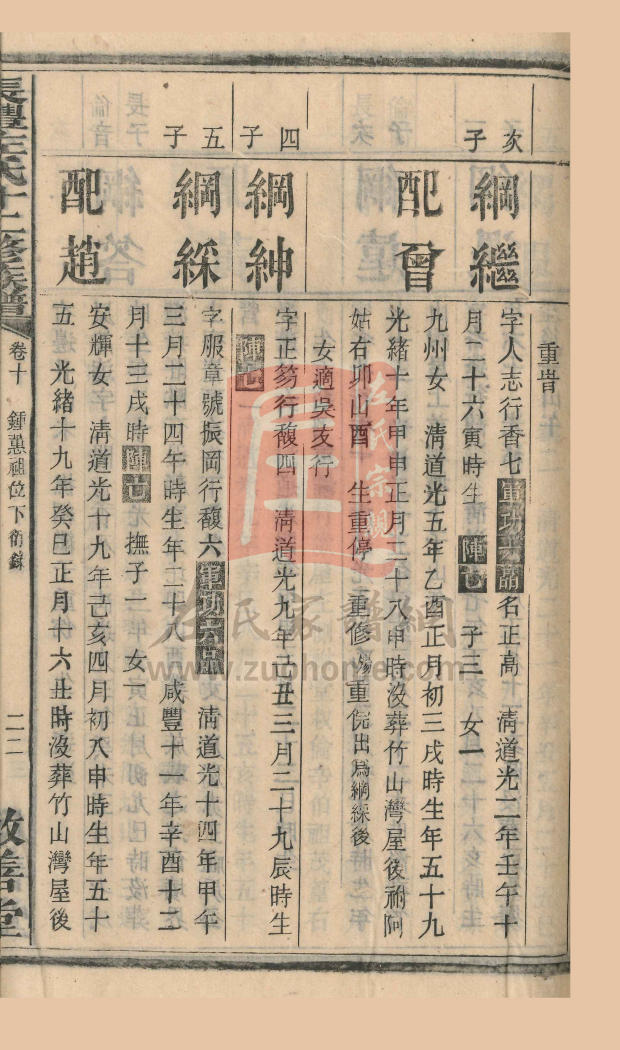 重肯
次子
綱繼
字人志行香七軍功六品名正高 清道光二年壬午十
月二十六寅時生陣亡 子三 女一
配曾
九州女 清道光五年乙酉正月初三戌時生年五十九
光緒十年甲申正月二十八申時沒葬竹山灣屋後祔阿
姑右卯山酉 生重停 重修殤重倪出為綱綵後
女適吳友行
四子
綱紳
字正笏行馥四 清道光九年己丑三月二十九辰時生
陣亡
五子
綱綵
字服章號振岡行馥六軍功六品 清道光十四年甲午
三月二十四午時生年二十八 咸豐十一年辛酉十二
月十三戌時陣亡 撫子一 女一
配趙
安輝女 清道光十九年己亥四月初八申時生年五十
五 光緒十九年癸巳正月十六丑時沒葬竹山灣屋後
長豐左氏十二修族譜
卷十
鍾蕙祉位下衡錄
二二
敦善堂
左氏宗親
左氏家譜網
www.zuohome.com